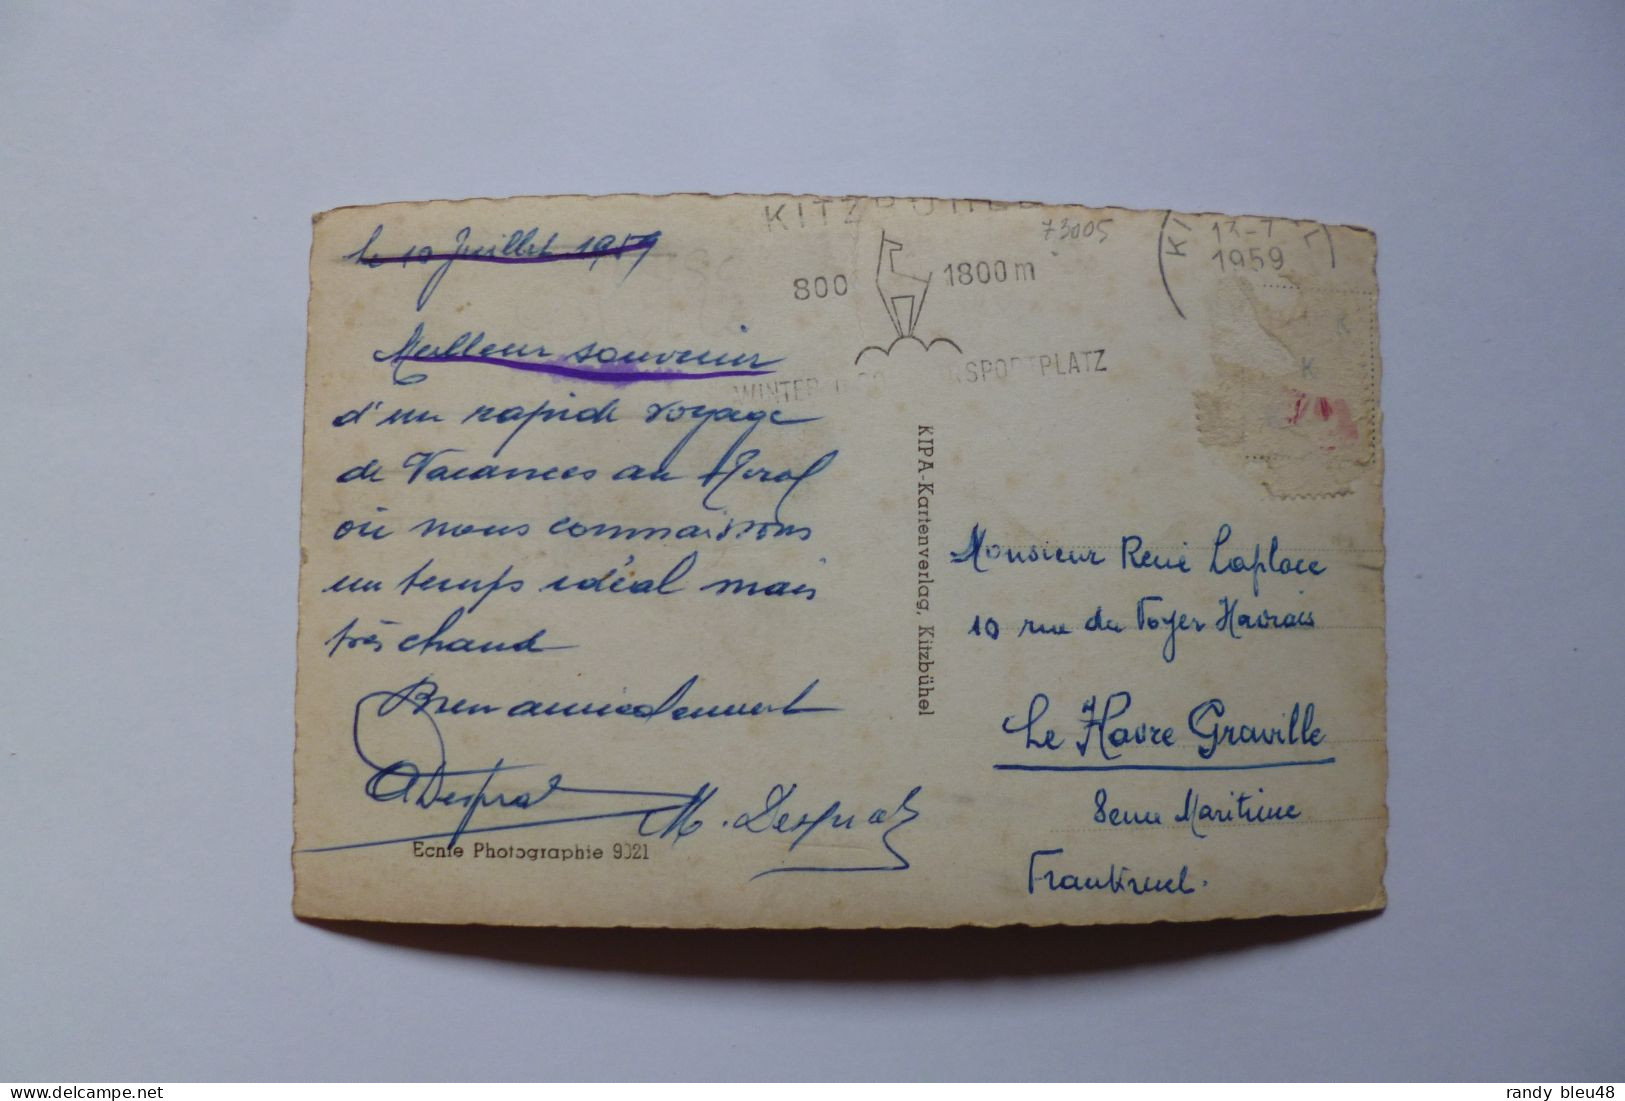 le 10 Juillet 1959
Meilleur souvenir
d'un rapide voyage
de Vacances au Tyrol
où nous connaissons
un temps idéal mais
très chaud
Bien amicalement
ADesprat
M. Desprat
Echte Photographie 9021
KIPA-Kartenverlag, Kitzbühel
KITZBÜHEL
800 1800 m
WINTER SPORTPLATZ
73005
13-7
1959
Monsieur René Laplace
10 rue du Foyer Havrais
Le Havre Graville
Seine Maritime
Frankreich.
randy bleu48